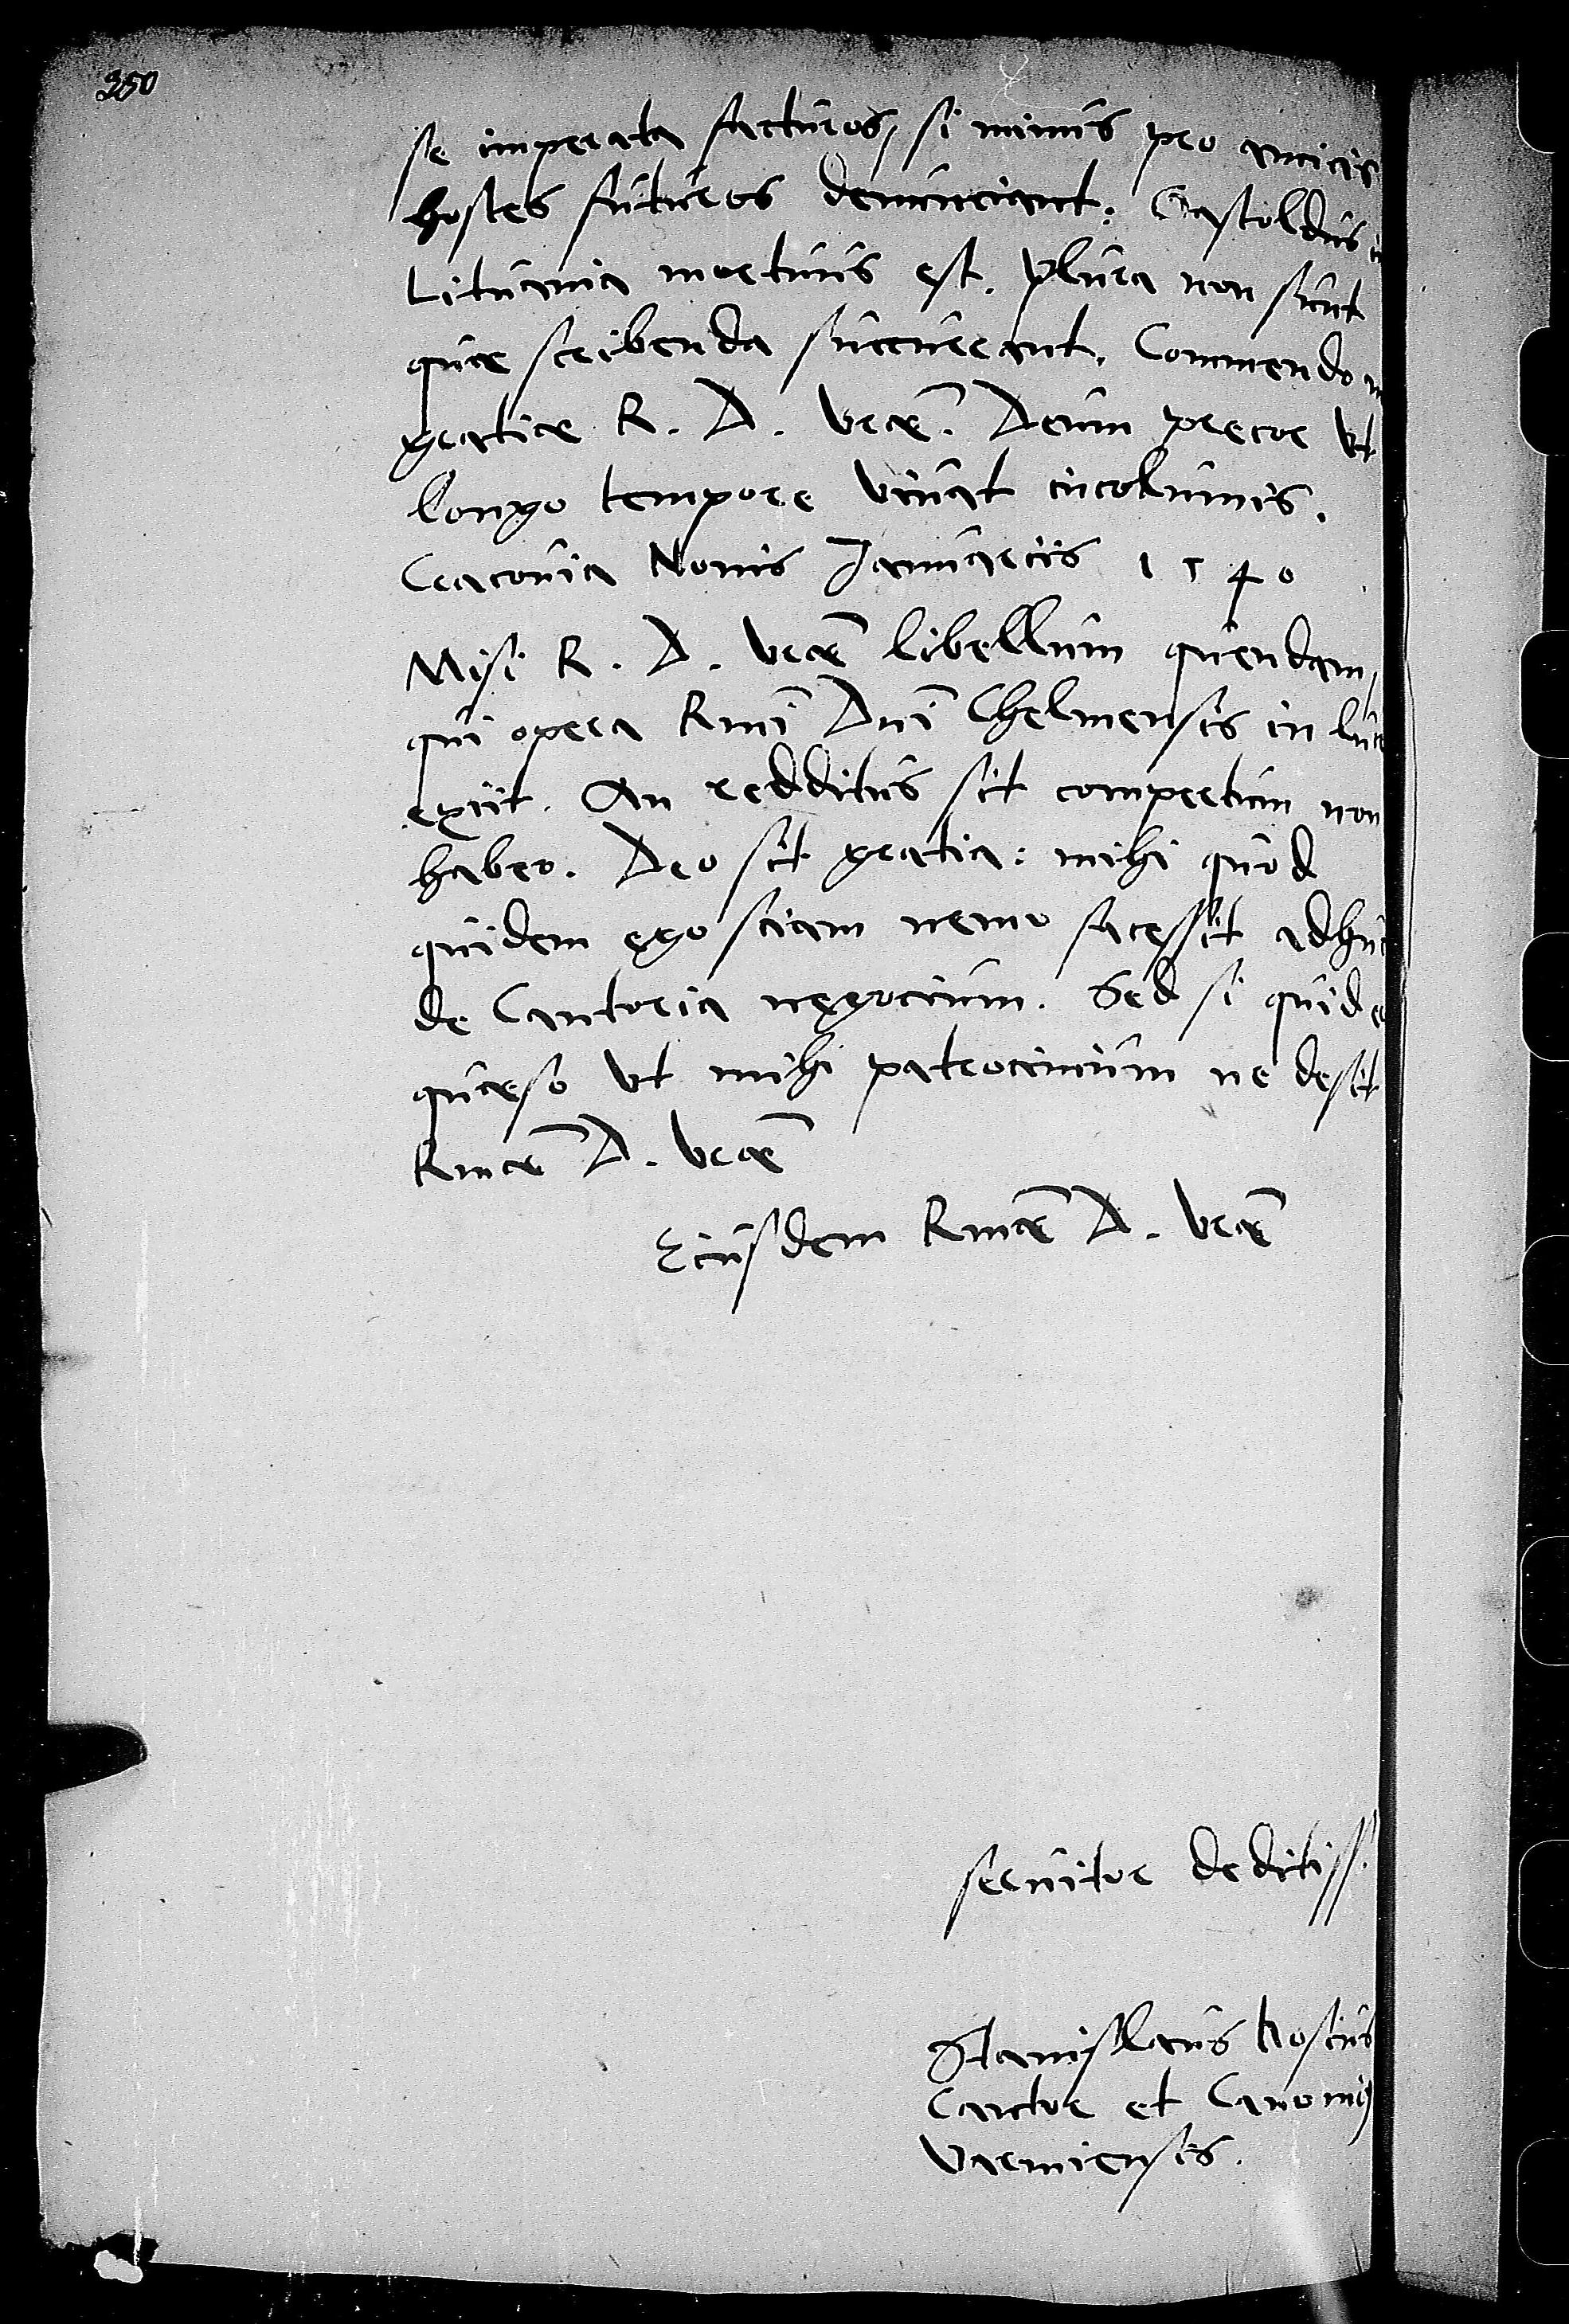 350
se imperata facturos, si minus pro amicis
hostes futuros denunciant. Gastoldus in
Lituania mortuus est. Plura non sunt
quae scribenda succurrant. Commendo m
gratiae R. D. vrae. Deum precor ut
longo tempore vivat incolumis.
Cracovia Nonis Januariis 1540
Misi R. D. vrae libellum quendam,
qui opera Rmi Dni Chelmensis in luce
exiit. An redditus sit compertum non
habeo. Deo sit gratia: mihi quod
quidem ego sciam nemo facessit adhuc
de Cantoria negocium. Sed si quid e
quaeso ut mihi patrocinium ne desit
Rmae D. vrae
Eiusdem Rmae D. vrae
servitor deditiss.
Stanislaus Hosius
Cantor et Canonic
Varmiensis.